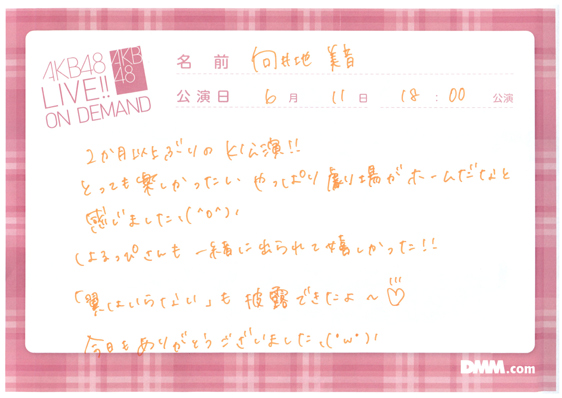 AKB48
AKB
48
LIVE!!
ON DEMAND
名前 向井地 美音
公演日 6月 11日 18:00 公演
2か月以上ぶりのK公演!!
とっても楽しかったし、やっぱり劇場がホームだなと
感じました、(^o^)、
しよるっぴさんも 一緒に出られて嬉しかった!!
「翼はいらない」も 披露できたよ〜♡
今日もありがとうございました、(・ω・)、
DMM.com